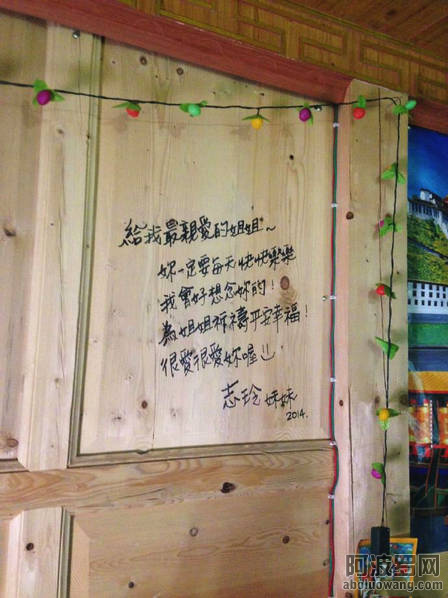 給我最親愛的姐姐~
妳一定要每天快快樂樂
我會好想念妳的!
為姐姐祈禱平安幸福!
很愛很愛妳喔
志玲妹妹
2014.
阿波罗网
aboluowang.com